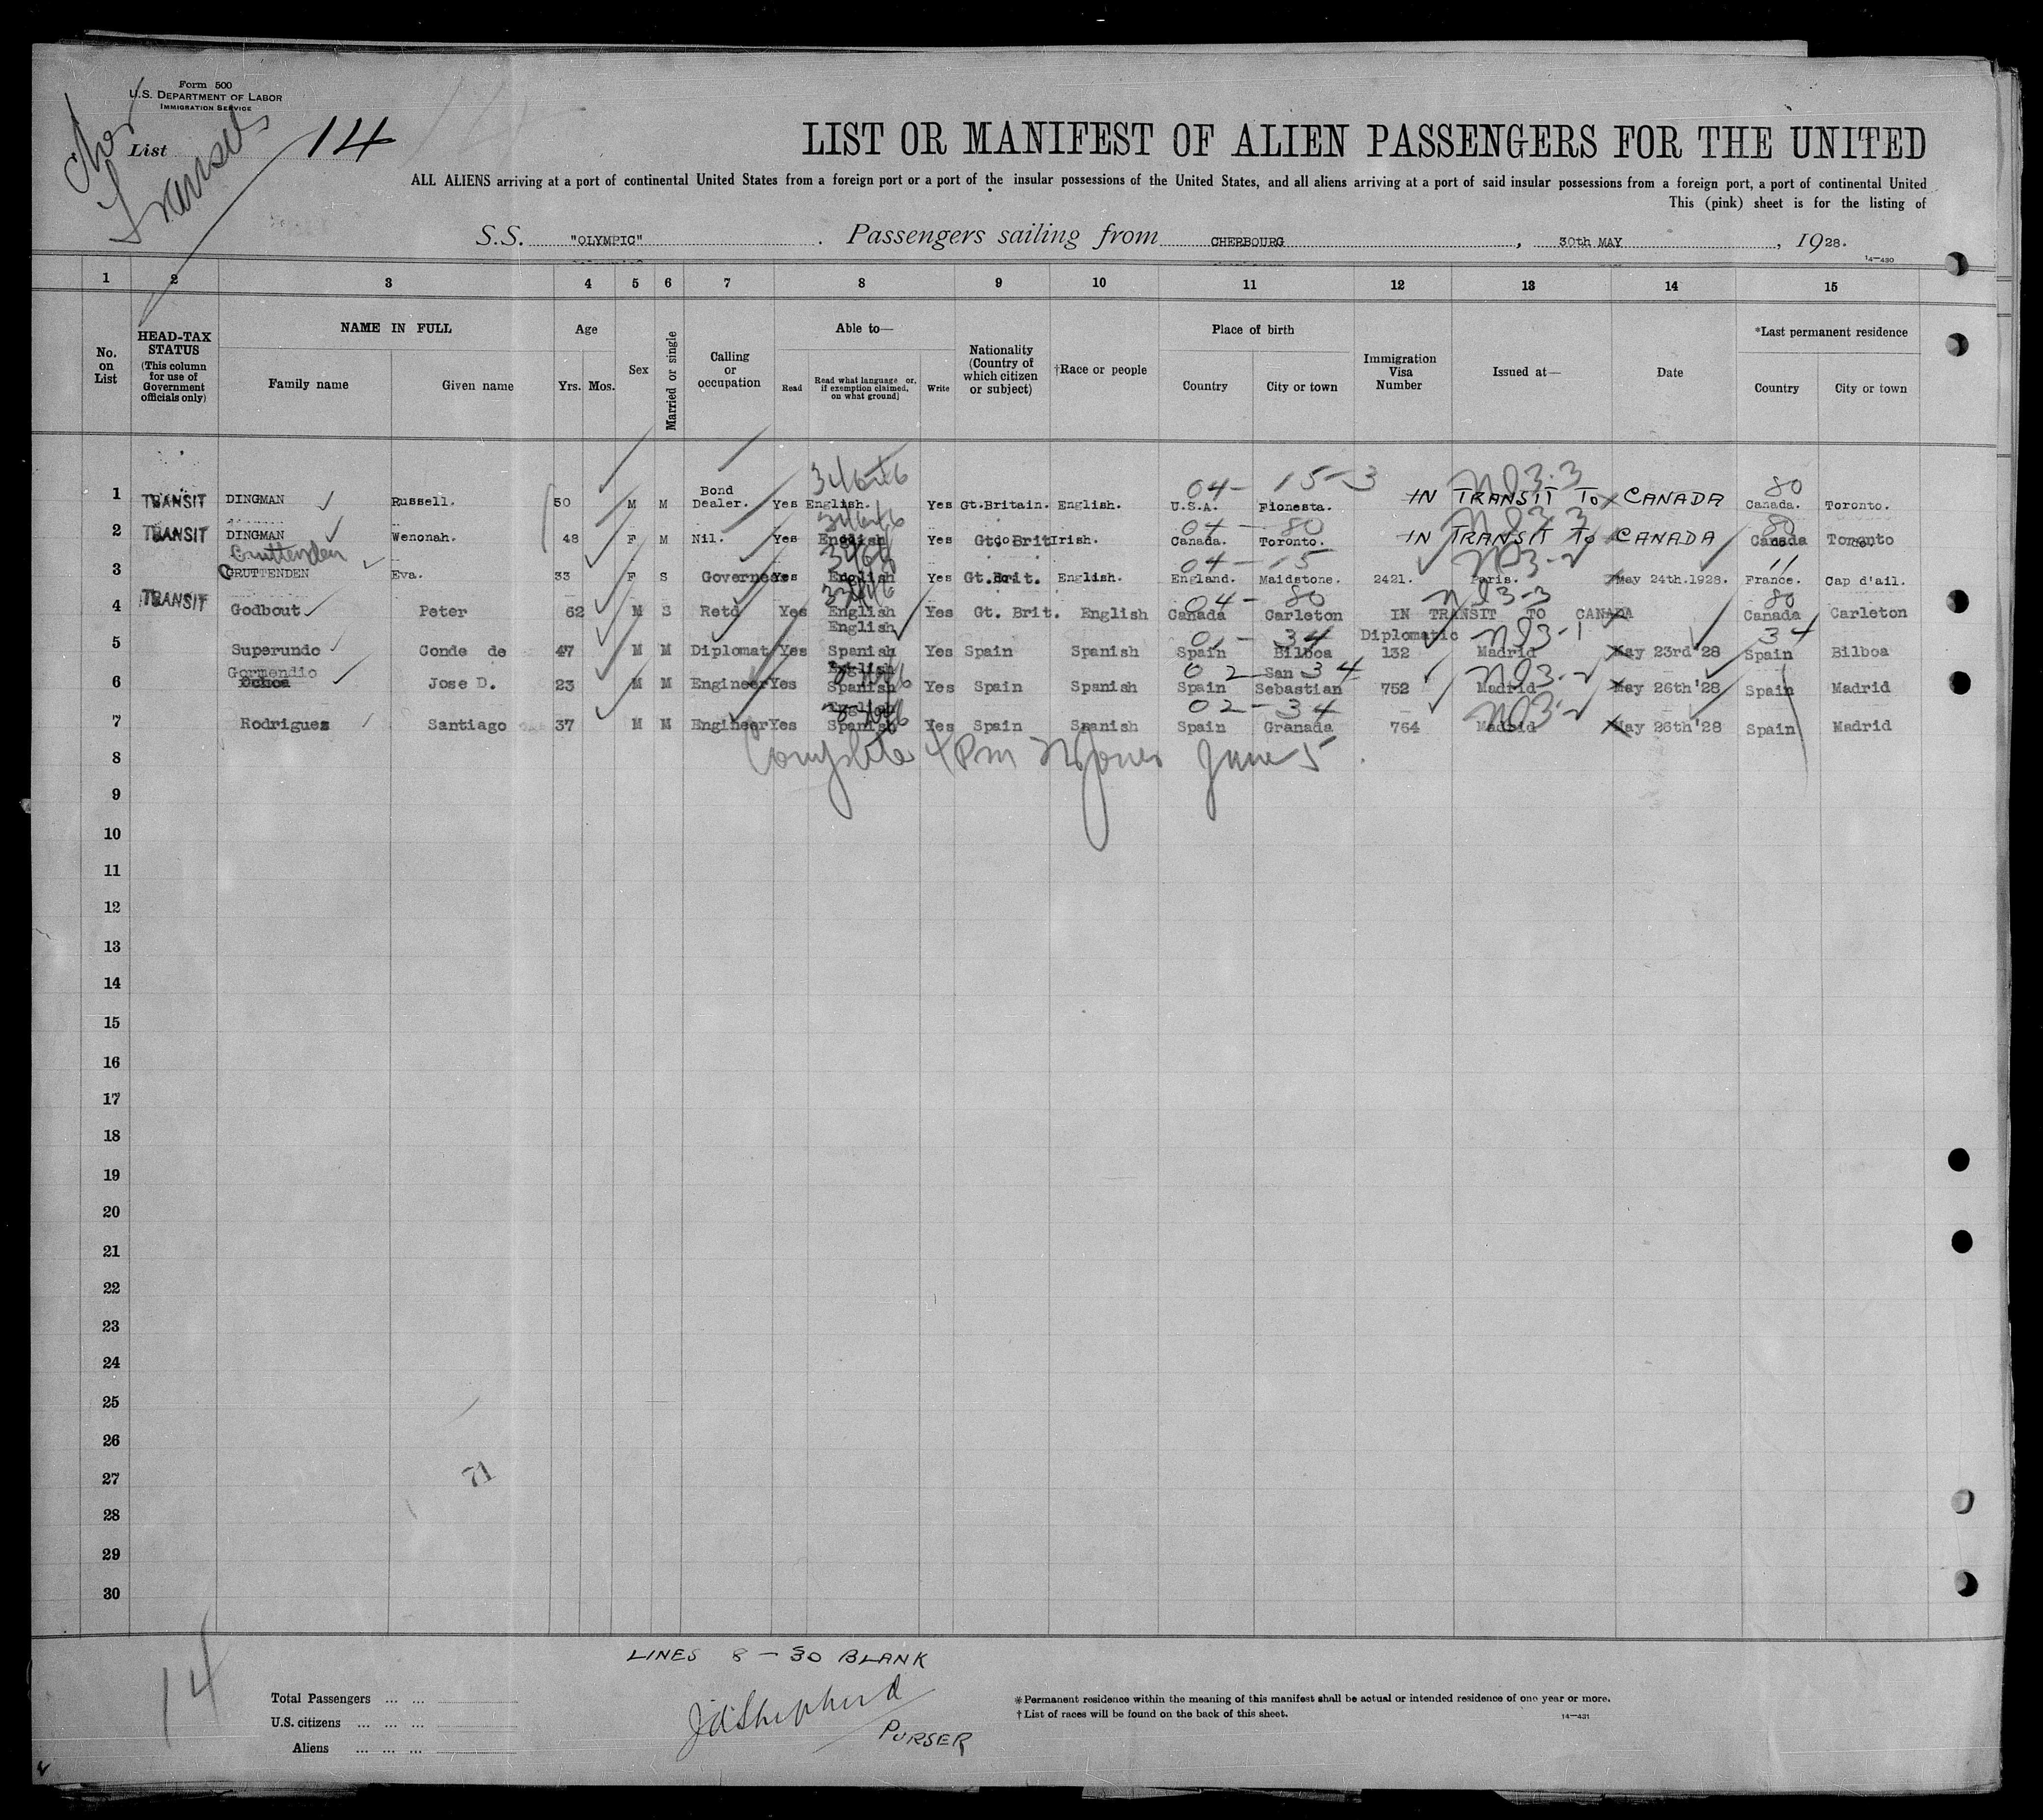 Form 500
U.S. DEPARTMENT OF LABOR
IMMIGRATION SERVICE
List 14
LIST OR MANIFEST OF ALIEN PASSENGERS FOR THE UNITED
ALL ALIENS arriving at a port of continental United States from a foreign port or a port of the insular possessions of the United States, and all aliens arriving at a port of said insular possessions from a foreign port, a port of continental United
This (pink) sheet is for the listing of
S.S. "OLYMPIC" . Passengers sailing from CHERBOURG , 30th MAY , 1928.
14—430
1 2 3 4 5 6 7 8 9 10 11 12 13 14 15
No. on List
HEAD-TAX STATUS (This column for use of Government officials only)
NAME IN FULL Family name Given name
Age Yrs. Mos.
Sex
Married or single
Calling or occupation
Able to— Read Read what language or, if exemption claimed, on what ground] Write
Nationality (Country of which citizen or subject)
†Race or people
Place of birth Country City or town
Immigration Visa Number
Issued at—
Date
*Last permanent residence Country City or town
346 04- 15-3 ND3-3 80
1 TRANSIT DINGMAN Russell. 50 M M Bond Dealer. Yes English. Yes Gt.Britain. English. U.S.A. Fionesta. IN TRANSIT TO CANADA Canada. Toronto.
04 - 80 80
2 TRANSIT DINGMAN Wenonah. 48 F M Nil. Yes English Yes Gt. Brit Irish. Canada. Toronto. IN TRANSIT TO CANADA Canada Toronto
Cruttenden 04 - 15 ND3-2 11
3 CRUTTENDEN Eva. 33 F S Governess Yes English Yes Gt. Brit. English. England. Maidstone. 2421. Paris. May 24th.1928. France. Cap d'ail.
04 - 80 ND3-3 80
4 TRANSIT Godbout Peter 62 M S Retd Yes English Yes Gt. Brit. English Canada Carleton IN TRANSIT TO CANADA Canada Carleton
English 01 - 34 Diplomatic ND3-1 34
5 Superundo Conde de 47 M M Diplomat Yes Spanish Yes Spain Spanish Spain Bilboa 132 Madrid May 23rd '28 Spain Bilboa
Gormendio English 02 San 34 ND3-2
6 Ochoa Jose D. 23 M M Engineer Yes Spanish Yes Spain Spanish Spain Sebastian 752 Madrid May 26th '28 Spain Madrid
English 02 - 34 ND3-2
7 Rodriguez Santiago 37 M M Engineer Yes Spanish Yes Spain Spanish Spain Granada 764 Madrid May 26th '28 Spain Madrid
8 Complete 4 PM June 5
9
10
11
12
13
14
15
16
17
18
19
20
21
22
23
24
25
26
27 71
28
29
30
LINES 8 - 30 BLANK
14
Total Passengers ... ...
U.S. citizens ... ... ...
Aliens ... ... ...
Shepherd
PURSER
*Permanent residence within the meaning of this manifest shall be actual or intended residence of one year or more.
†List of races will be found on the back of this sheet.
14—431